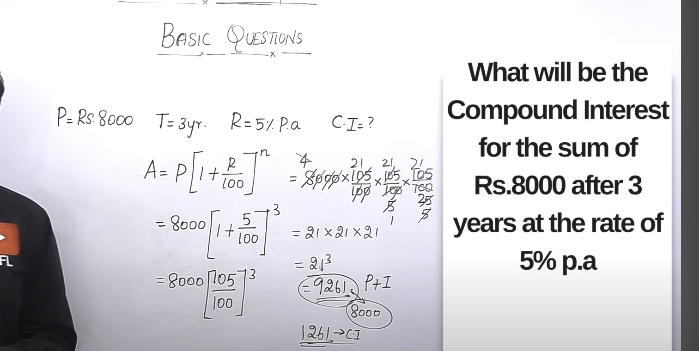 BASIC QUESTIONS
P=RS.8000 T=3yr. R=5% P.a C.I=?
A=P[1+R/100]^n
=8000[1+5/100]^3
=8000[105/100]^3
=8000×105/100×105/100×105/100
4 21 21 21
5 25
1 5
=21×21×21
=21^3
=9261 P+I
8000
1261→CI
FL
What will be the
Compound Interest
for the sum of
Rs.8000 after 3
years at the rate of
5% p.a